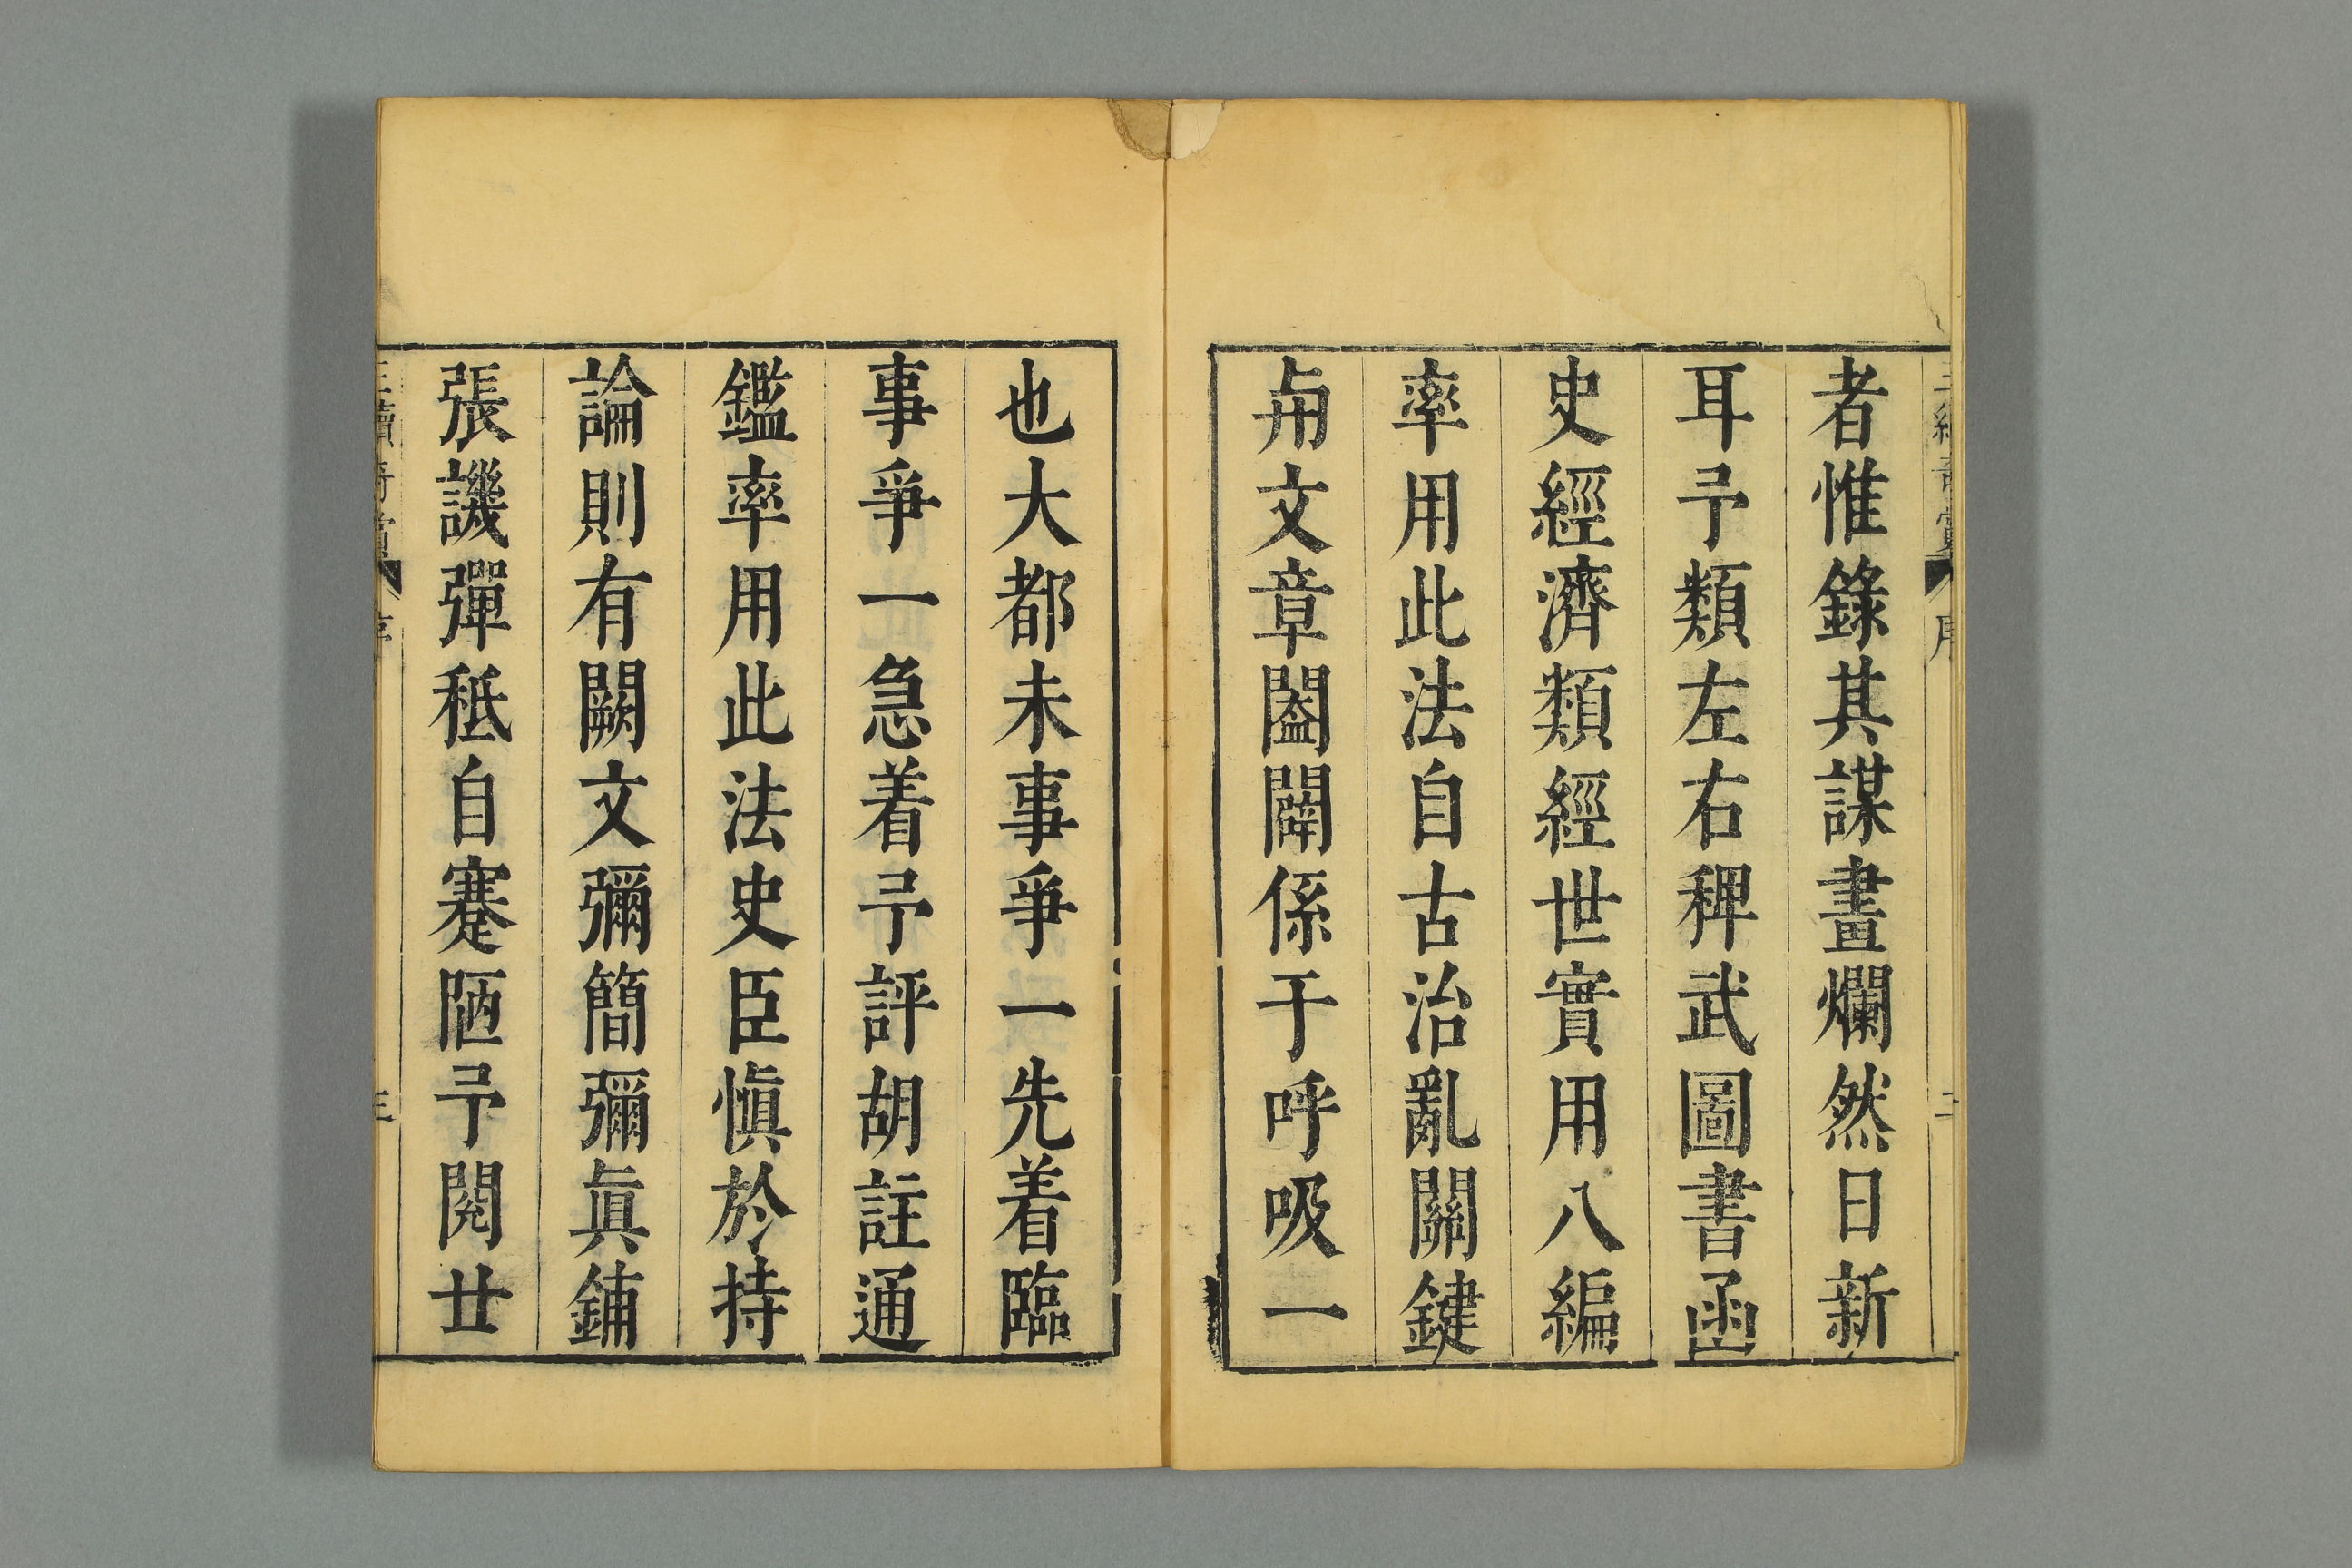 者惟錄其謀畫爛然日新
耳予類左右稗武圖書函
史經濟類經世實用八編
率用此法自古治亂關鍵
文章闔闢係于呼吸一
也大都未事爭一先着臨
事爭一急着予評胡註通
鑑率用此法史臣愼於持
論則有闕文彌簡彌眞鋪
張譏彈秪自蹇陋予閱廿